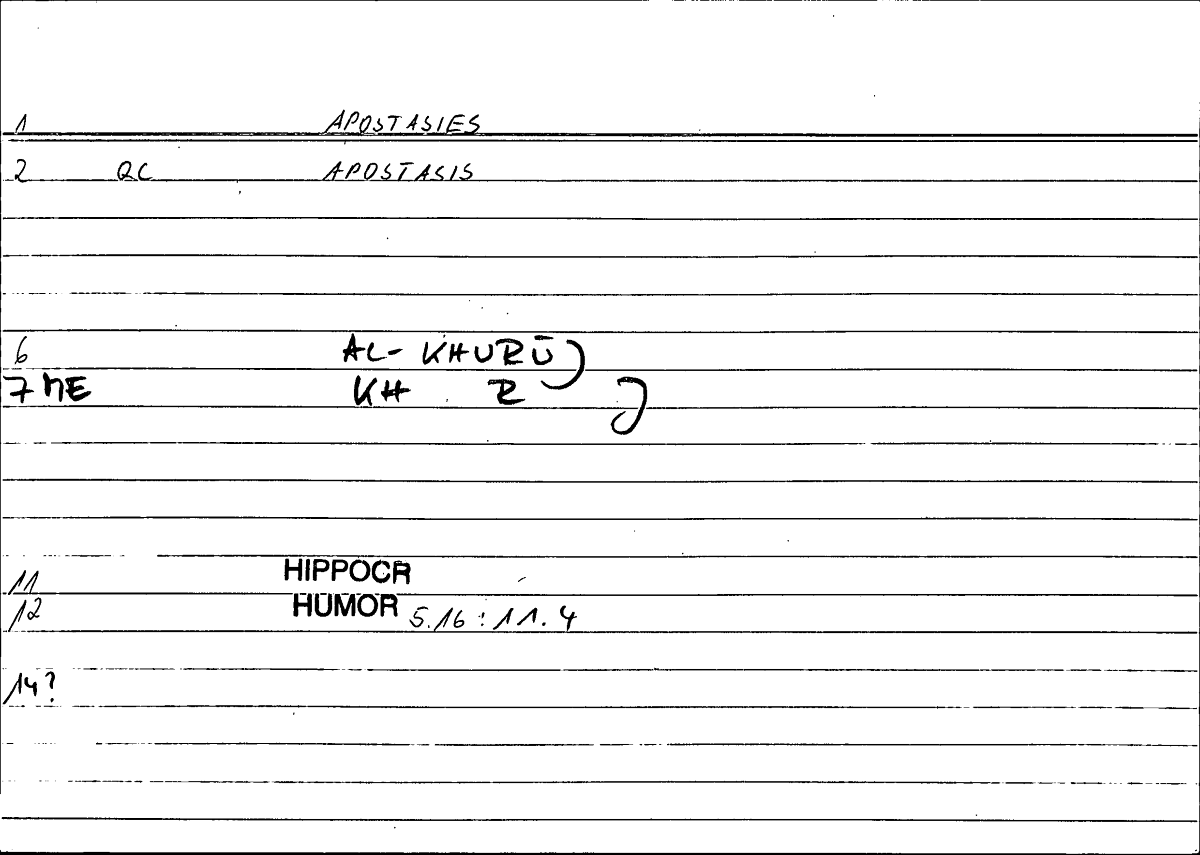 1 APOSTASIES
2 QC APOSTASIS
6 AL- KHURŪJ
7 ME KH R J
11 HIPPOCR
12 HUMOR 5.16 : 11.4
14?